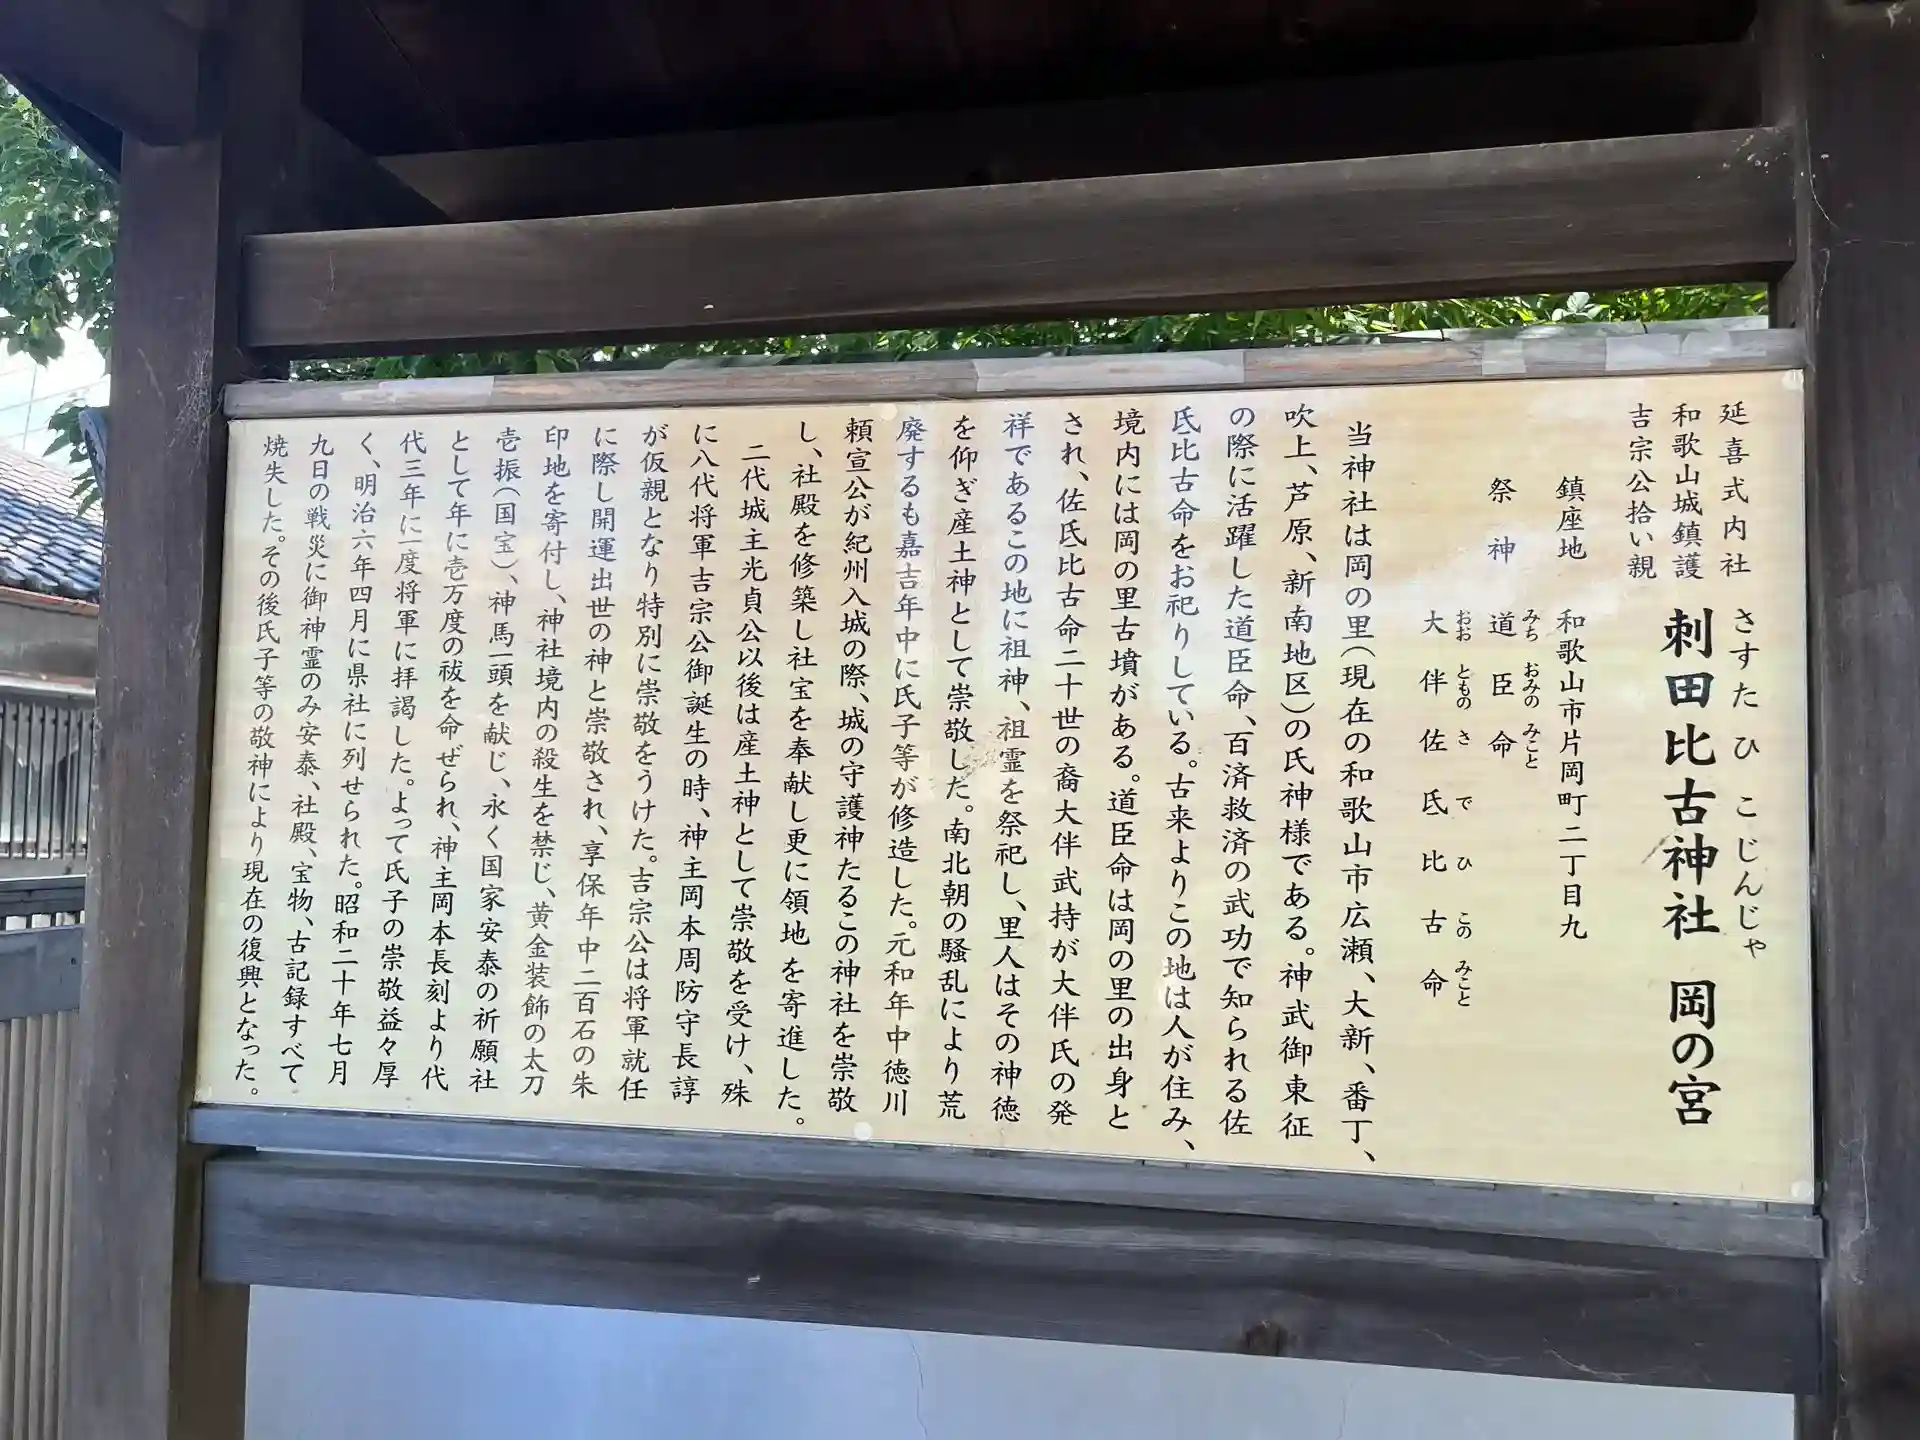 延喜式内社
和歌山城鎮護
吉宗公拾い親
さすたひこじんじゃ
刺田比古神社 岡の宮
鎮座地 和歌山市片岡町二丁目九
祭神 道臣命
みち おみの みこと
大伴佐氐比古命
おお ともの さ で ひ この みこと
当神社は岡の里(現在の和歌山市広瀬、大新、番丁、
吹上、芦原、新南地区)の氏神様である。神武御東征
の際に活躍した道臣命、百済救済の武功で知られる佐
氐比古命をお祀りしている。古来よりこの地は人が住み、
境内には岡の里古墳がある。道臣命は岡の里の出身と
され、佐氐比古命二十世の裔大伴武持が大伴氏の発
祥であるこの地に祖神、祖霊を祭祀し、里人はその神徳
を仰ぎ産土神として崇敬した。南北朝の騒乱により荒
廃するも嘉吉年中に氏子等が修造した。元和年中徳川
頼宣公が紀州入城の際、城の守護神たるこの神社を崇敬
し、社殿を修築し社宝を奉献し更に領地を寄進した。
二代城主光貞公以後は産土神として崇敬を受け、殊
に八代将軍吉宗公御誕生の時、神主岡本周防守長諄
が仮親となり特別に崇敬をうけた。吉宗公は将軍就任
に際し開運出世の神と崇敬され、享保年中二百石の朱
印地を寄付し、神社境内の殺生を禁じ、黄金装飾の太刀
壱振(国宝)、神馬一頭を献じ、永く国家安泰の祈願社
として年に壱万度の祓を命ぜられ、神主岡本長刻より代
代三年に一度将軍に拝謁した。よって氏子の崇敬益々厚
く、明治六年四月に県社に列せられた。昭和二十年七月
九日の戦災に御神霊のみ安泰、社殿、宝物、古記録すべて
焼失した。その後氏子等の敬神により現在の復興となった。